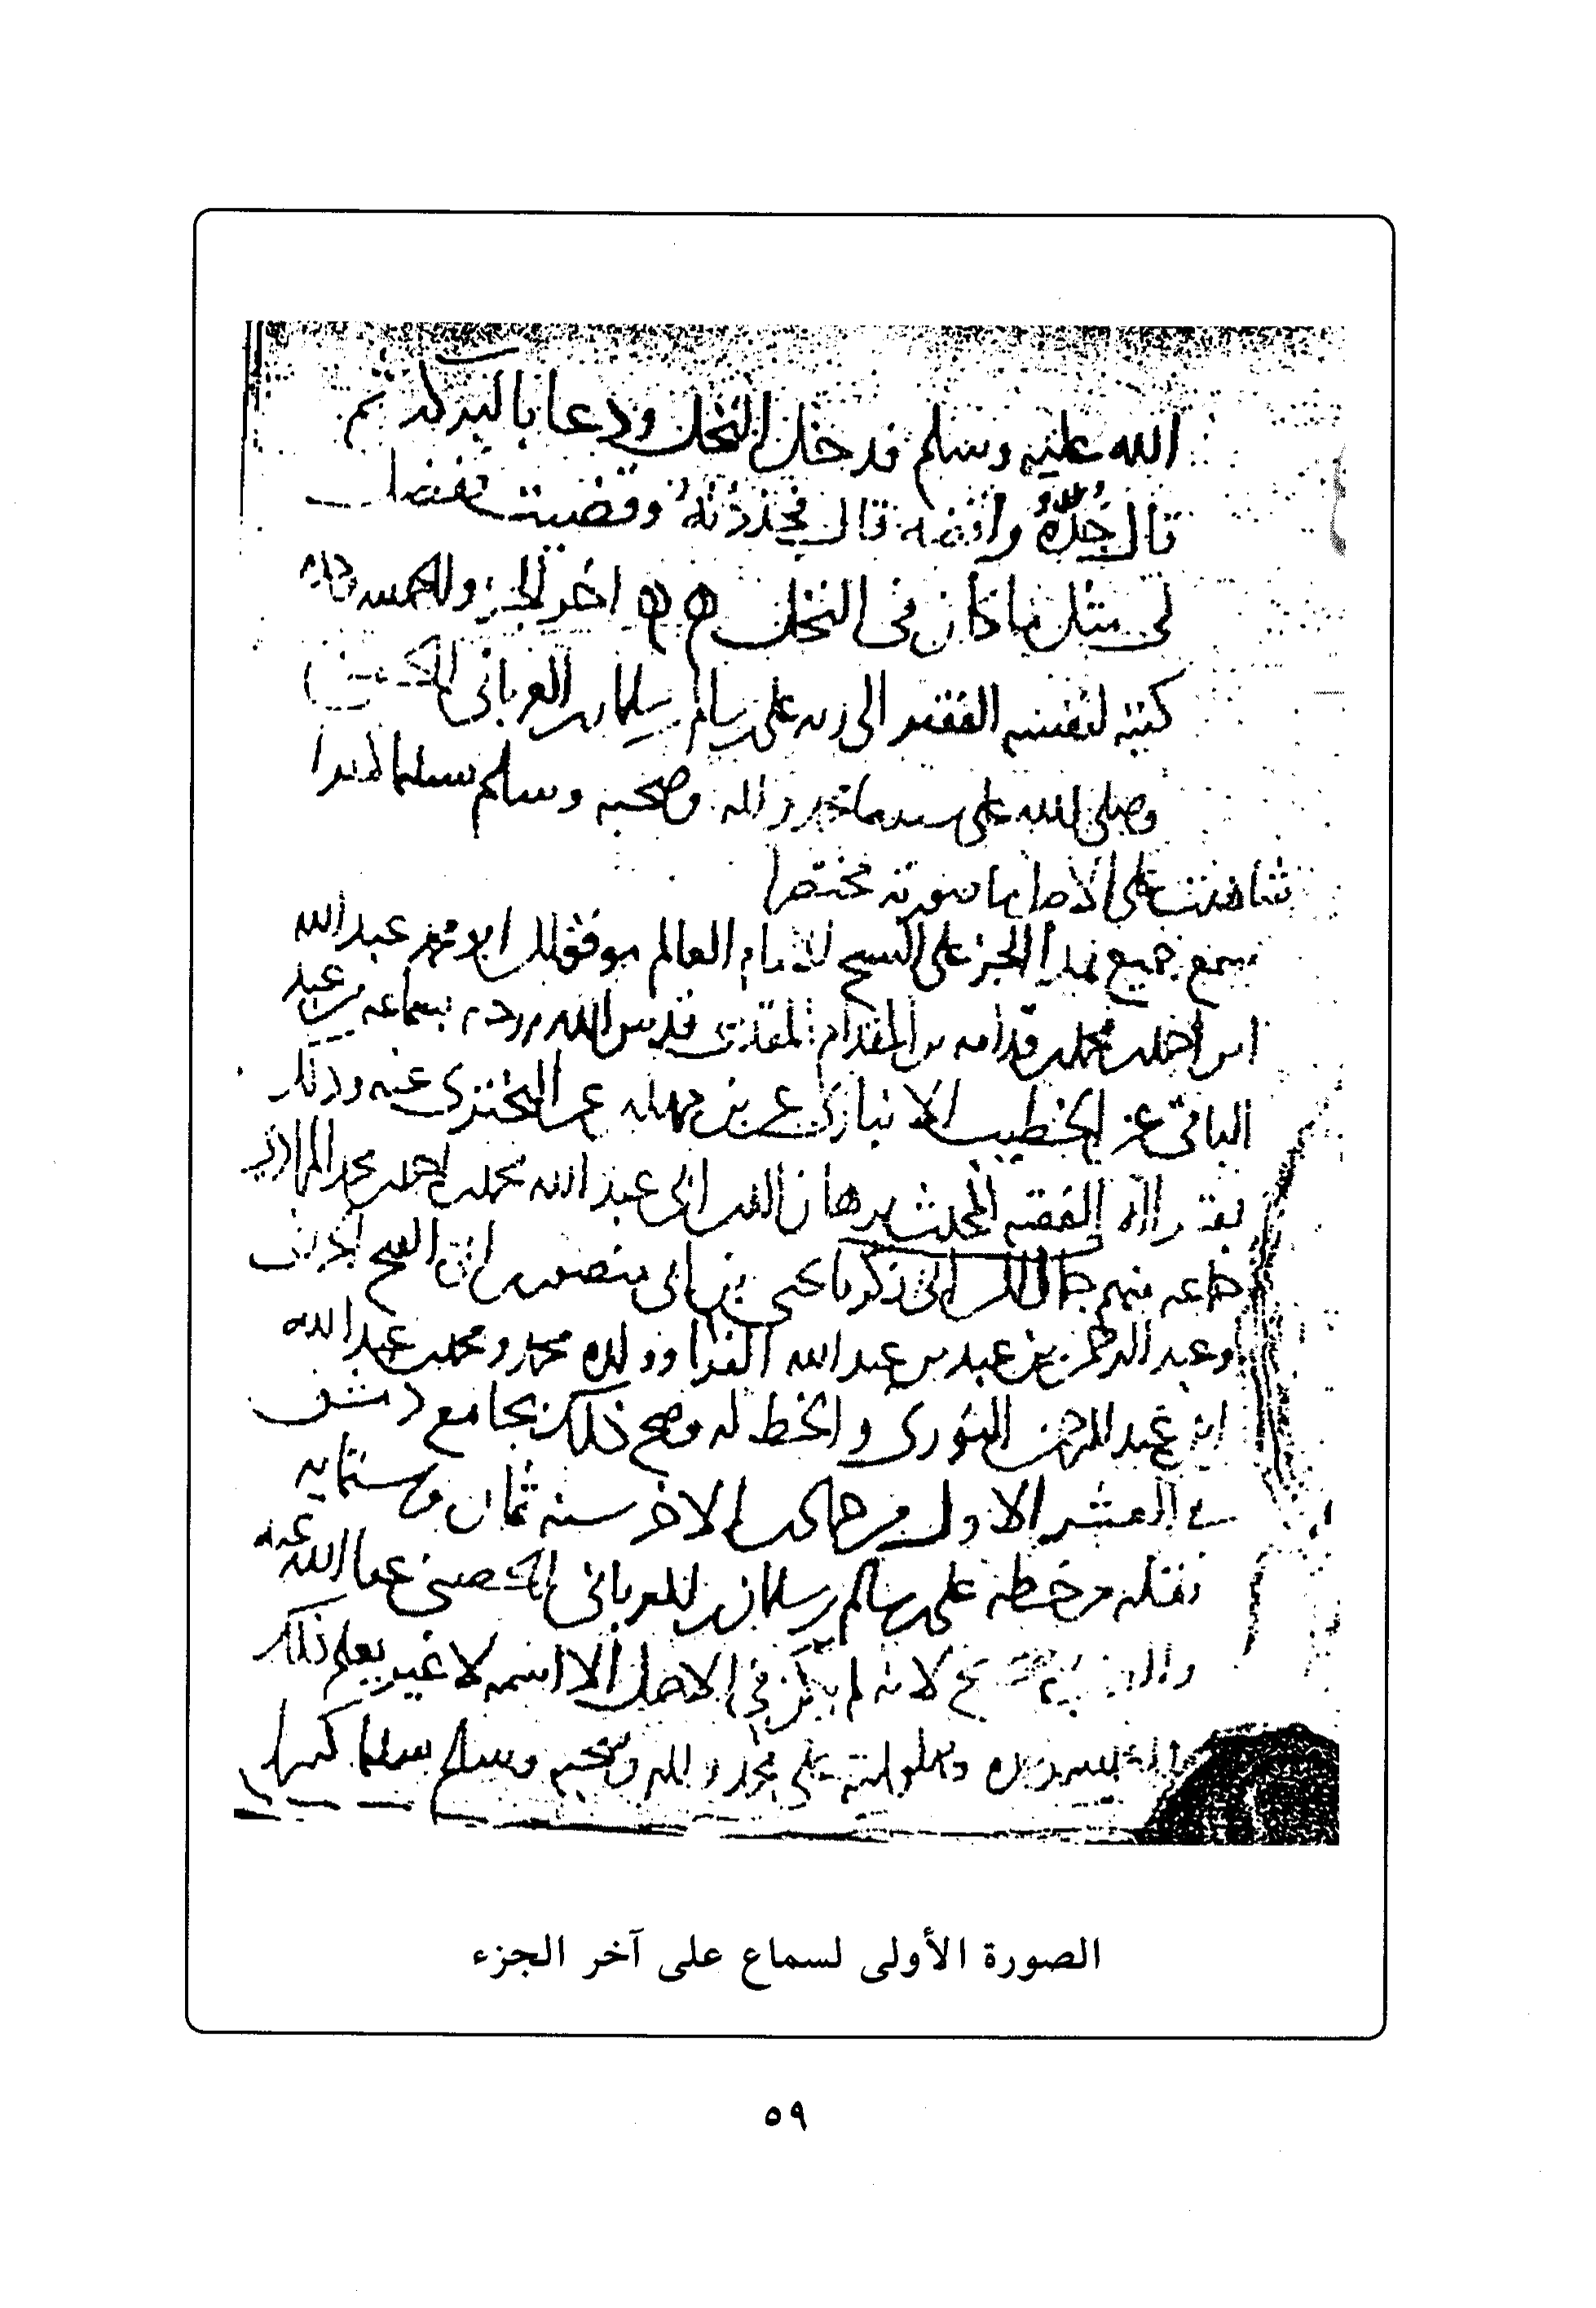 الله عليه وسلم فدخل النخل ودعا بالبركة ثم
قال جدّه واقضه قال فجذذته وقضيت ففضل
لي مثل ما كان في النخل اخر الجزء والحمد لله
كتبه لنفسه الفقير الى ربه على بن سالم بن سلمان العرباني
وصلى الله على سيدنا محمد واله وصحبه وسلم تسليما ابدا
شاهدت على الاصل ما صورته مختصرا
سمع جميع هذا الجزء على الشيخ الامام العالم موفق الدين ابو محمد عبد الله
ابن احمد بن محمد بن قدامه بن المقدام المقدسي قدس الله روحه بسماعه من عبد
الباقي عن الخطيب الانباري عن بن مهدي عن البختري عنه وذلك
بقراءة الفقيه المحدث برهان الدين ابي عبد الله محمد بن احمد بن محمد
جماعه منهم جمال الدين ابي زكريا يحيى بن ابي منصور بن ابي الفتح
وعبد الرحمن بن عبد بن عبد الله الفرا وولده محمد ومحمد بن عبد الله
ابن عبد الرحمن النوري والخط له وصح ذلك بجامع دمشق
في العشر الاول من جمادى الاخر سنة ثمان وستمايه
نقله من خطه على بن سالم بن سلمان العرباني الحصني عفا الله عنه
لانه لم يكن في الاصل الا اسمه لا غير يعلم ذلك
وصلواته على محمد واله وصحبه وسلم تسليما كثيرا
الصورة الأولى لسماع على آخر الجزء
٥٩